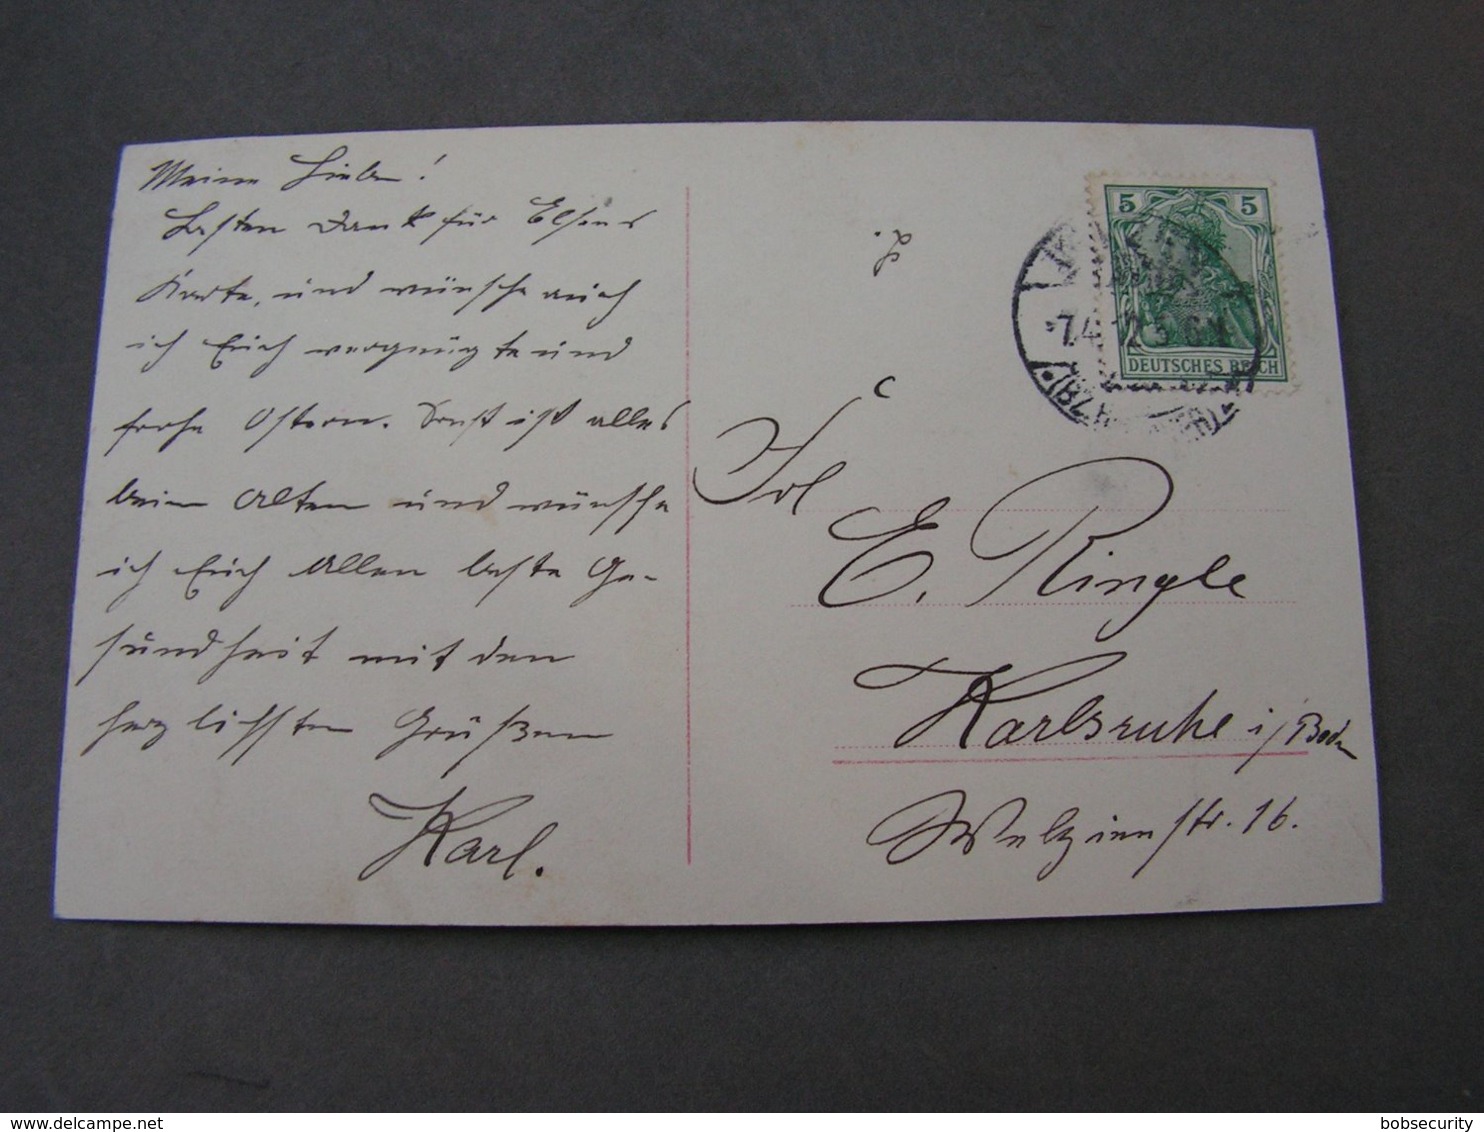 Meine Lieben!
Besten Dank für Elsens
Karte, und wünsche auch
ich Euch vergnügte und
frohe Ostern. Sonst ist alles
beim Alten und wünsche
ich Euch Allen beste Ge-
sundheit mit den
herzlichsten Grüßen
Karl.
5 5
DEUTSCHES REICH
7.4.12.5-6N
(BZ
Frl
E. Ringle
Karlsruhe i/Baden
Welzienstr. 16.
bobsecurity